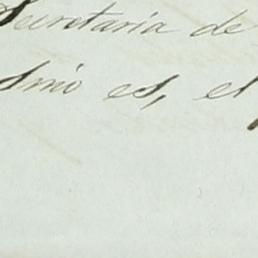 Secretaria de
Smo es, el